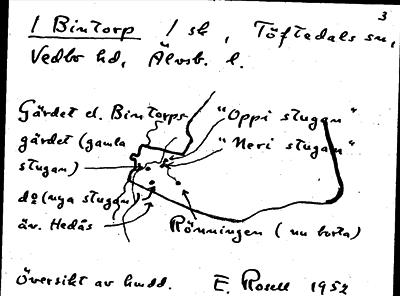 3
/ Bintorp / sk, Töftedals sn,
Vedbo hd, Älvsb. l.
Gärdet el. Bintorps-
gärdet (gamla
stugan)
do (nya stugan)
äv. Hedås
"Oppi stugan"
"Neri stugan"
Rönningen (nu borta)
Översikt av hmdd. E. Rosell 1952